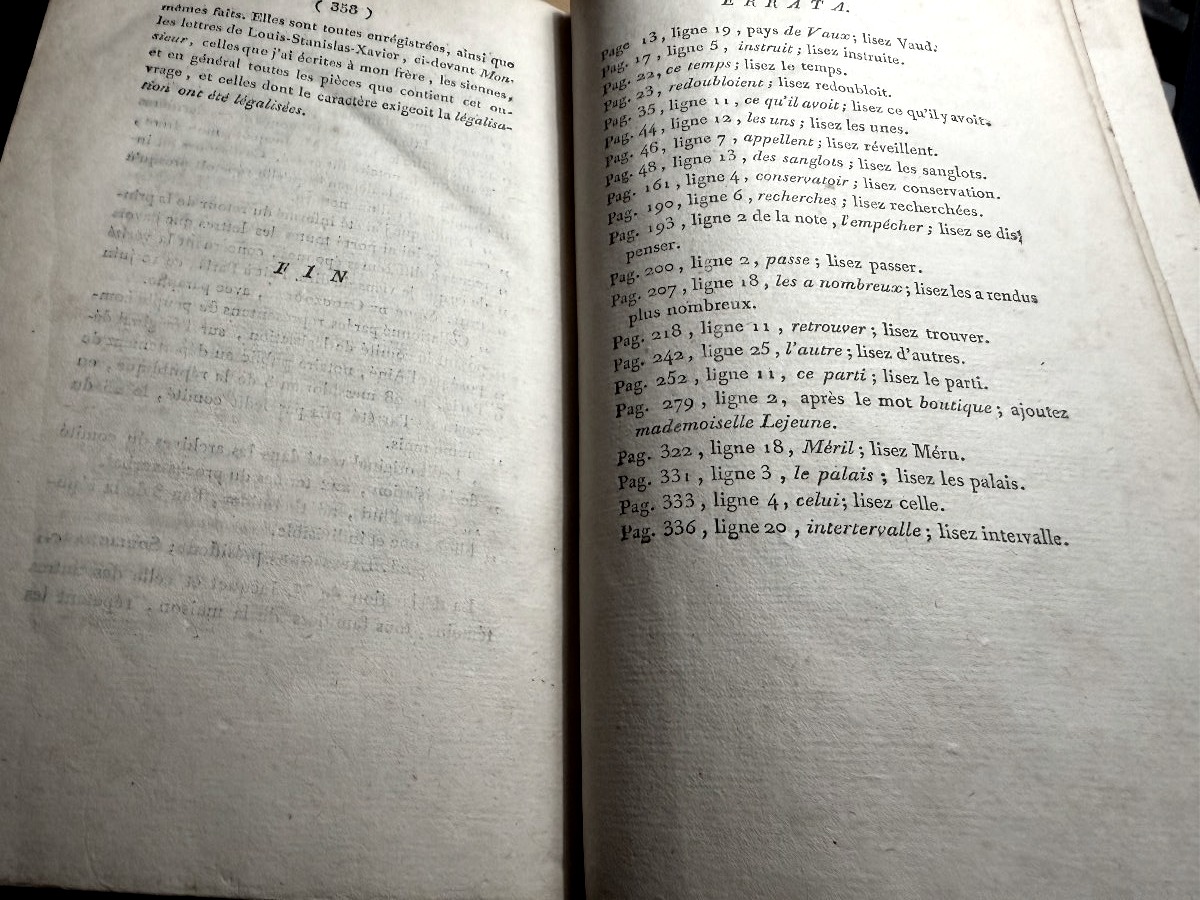 ( 358 )
mêmes faits. Elles sont toutes enrégistrées, ainsi que
les lettres de Louis-Stanislas-Xavier, ci-devant Mon-
sieur, celles que j'ai écrites à mon frère, les siennes,
et en général toutes les pièces que contient cet ou-
vrage, et celles dont le caractère exigeoit la légalisa-
tion ont été légalisées.
FIN
ERRATA.
Page 13, ligne 19, pays de Vaux; lisez Vaud.
Pag. 17, ligne 5, instruit; lisez instruite.
Pag. 22, ce temps; lisez le temps.
Pag. 23, redoubloient; lisez redoubloit.
Pag. 35, ligne 11, ce qu'il avoit; lisez ce qu'il y avoit.
Pag. 44, ligne 12, les uns; lisez les unes.
Pag. 46, ligne 7, appellent; lisez réveillent.
Pag. 48, ligne 13, des sanglots; lisez les sanglots.
Pag. 161, ligne 4, conservatoir; lisez conservation.
Pag. 190, ligne 6, recherches; lisez recherchées.
Pag. 193, ligne 2 de la note, l'empécher; lisez se dis-
penser.
Pag. 200, ligne 2, passe; lisez passer.
Pag. 207, ligne 18, les a nombreux; lisez les a rendus
plus nombreux.
Pag. 218, ligne 11, retrouver; lisez trouver.
Pag. 242, ligne 25, l'autre; lisez d'autres.
Pag. 252, ligne 11, ce parti; lisez le parti.
Pag. 279, ligne 2, après le mot boutique; ajoutez
mademoiselle Lejeune.
Pag. 322, ligne 18, Méril; lisez Méru.
Pag. 331, ligne 3, le palais; lisez les palais.
Pag. 333, ligne 4, celui; lisez celle.
Pag. 336, ligne 20, intertervalle; lisez intervalle.